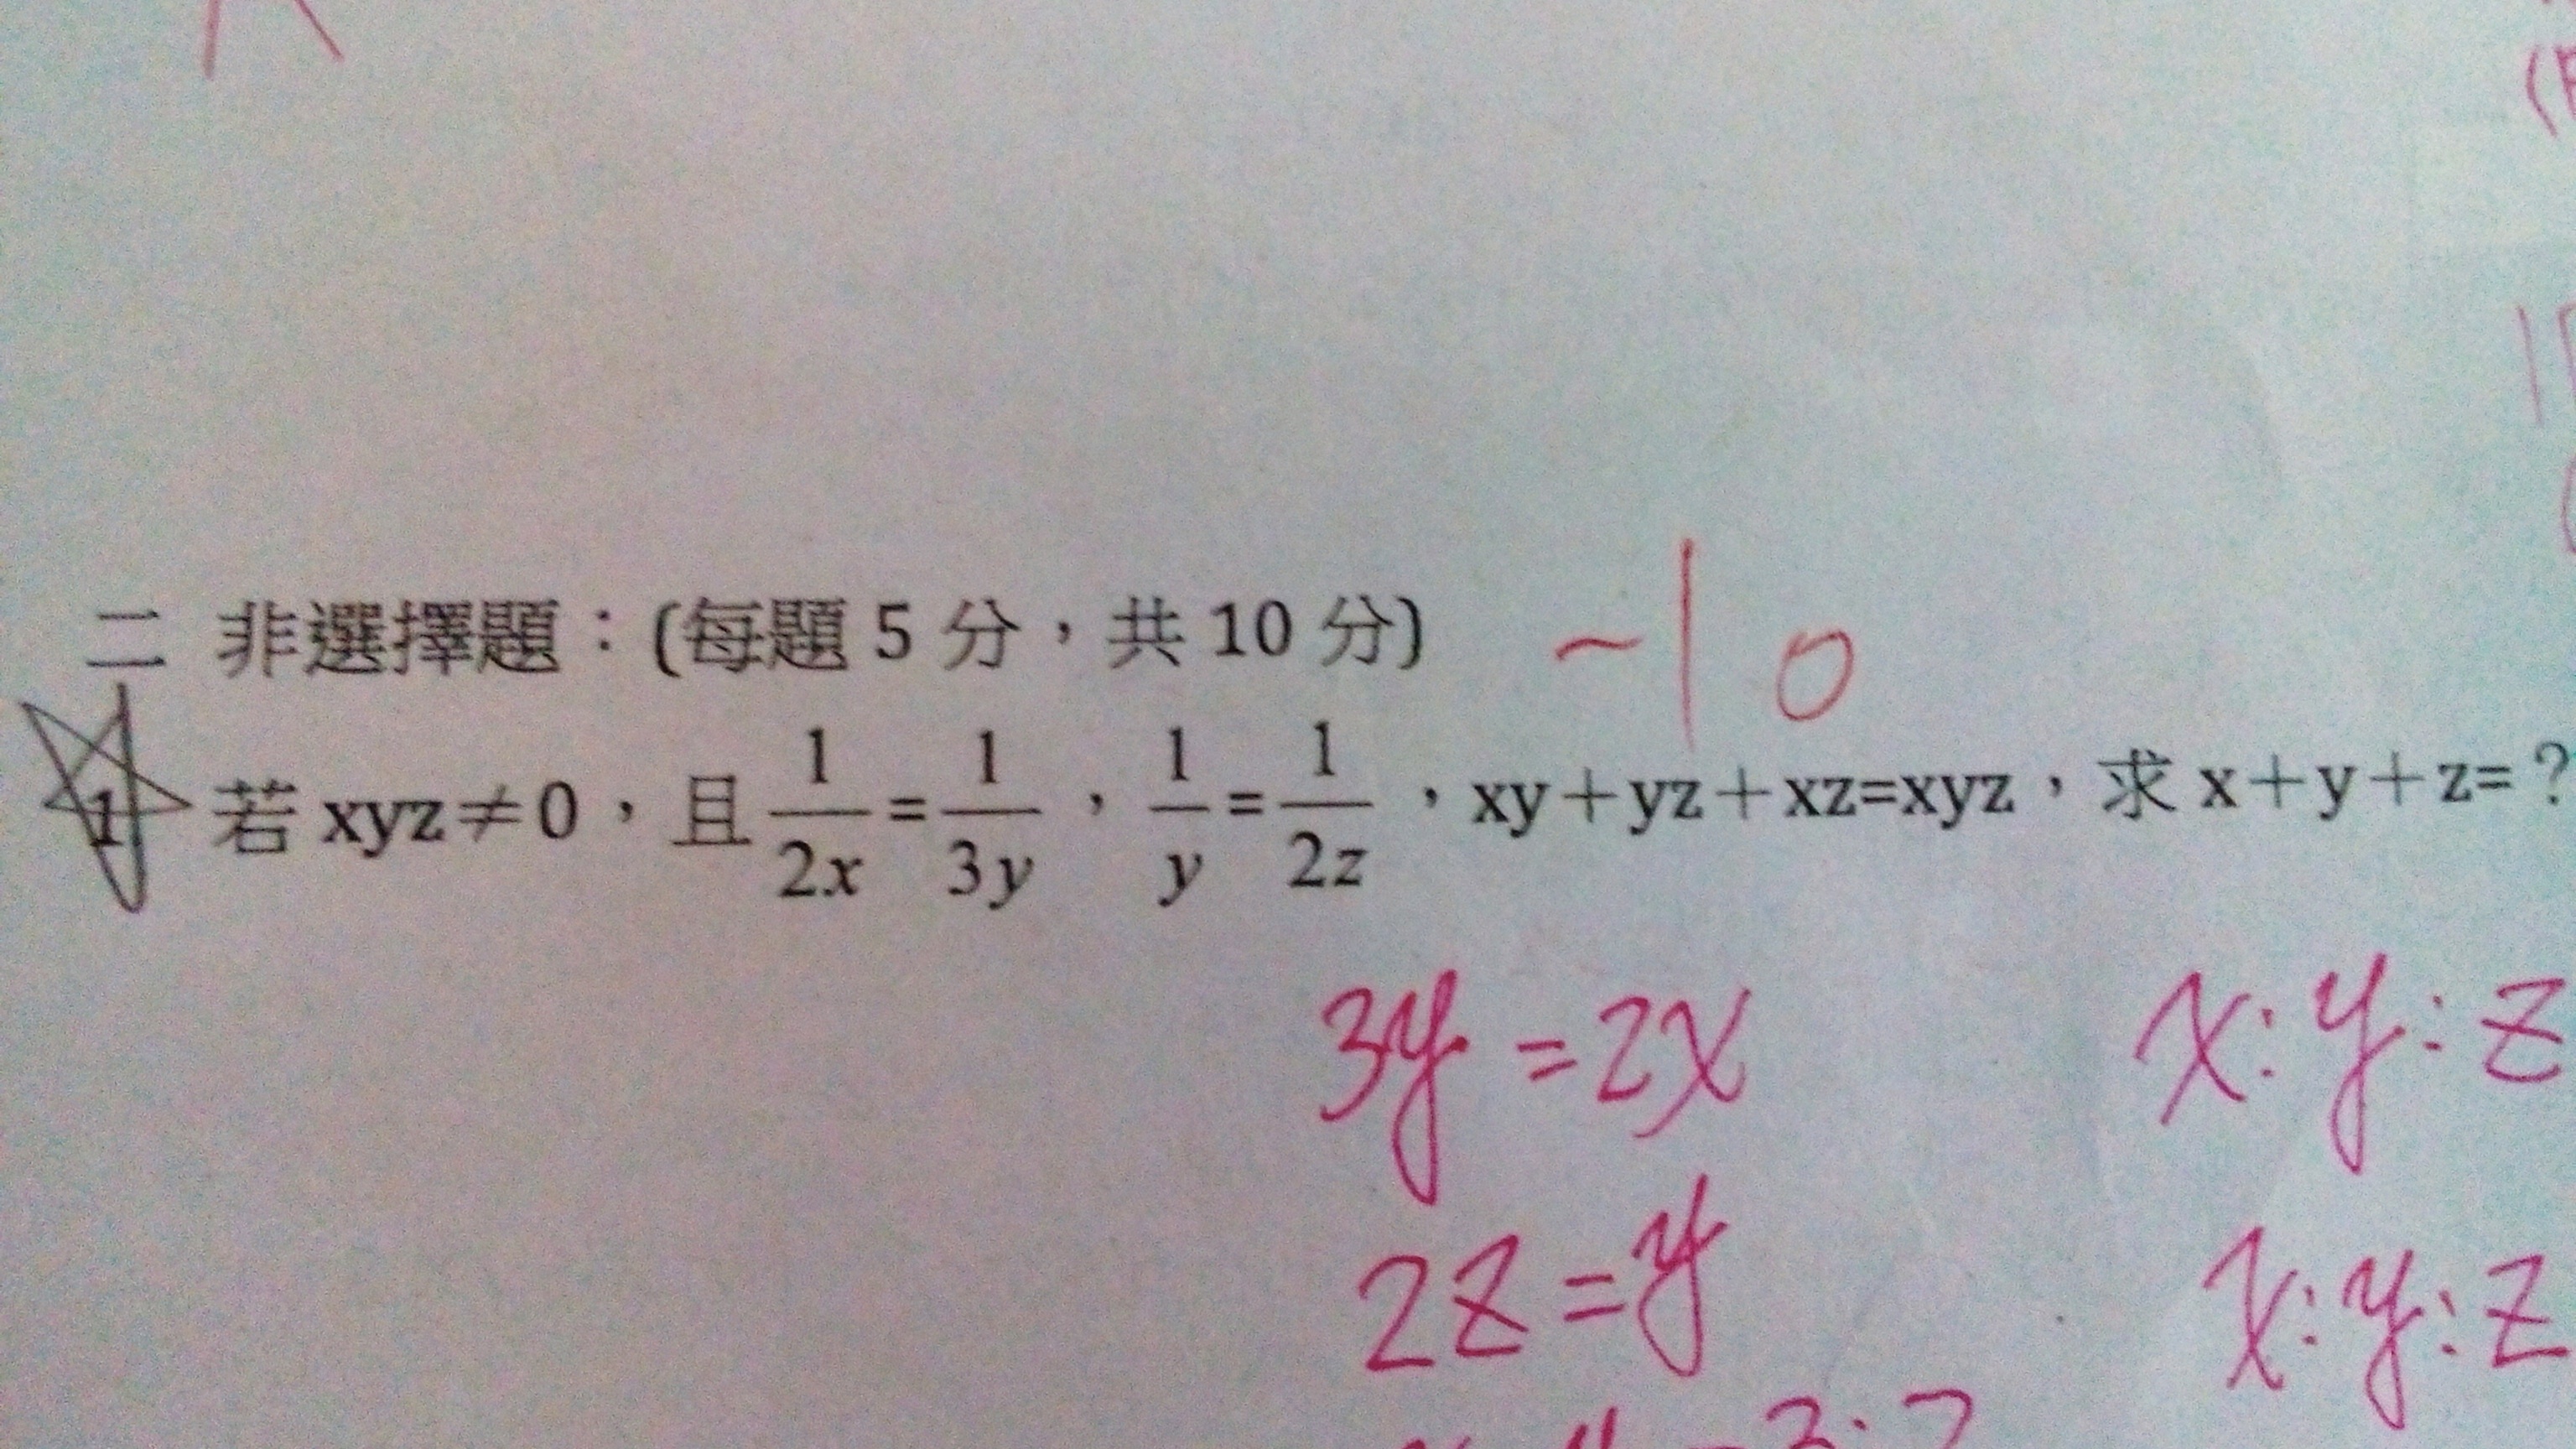 二 非選擇題：(每題 5 分，共 10 分) -10
1 若 xyz≠0，且 1/2x = 1/3y，1/y = 1/2z，xy＋yz＋xz=xyz，求 x＋y＋z=？
3y = 2x x:y:z
2z = y x:y:z
3:2